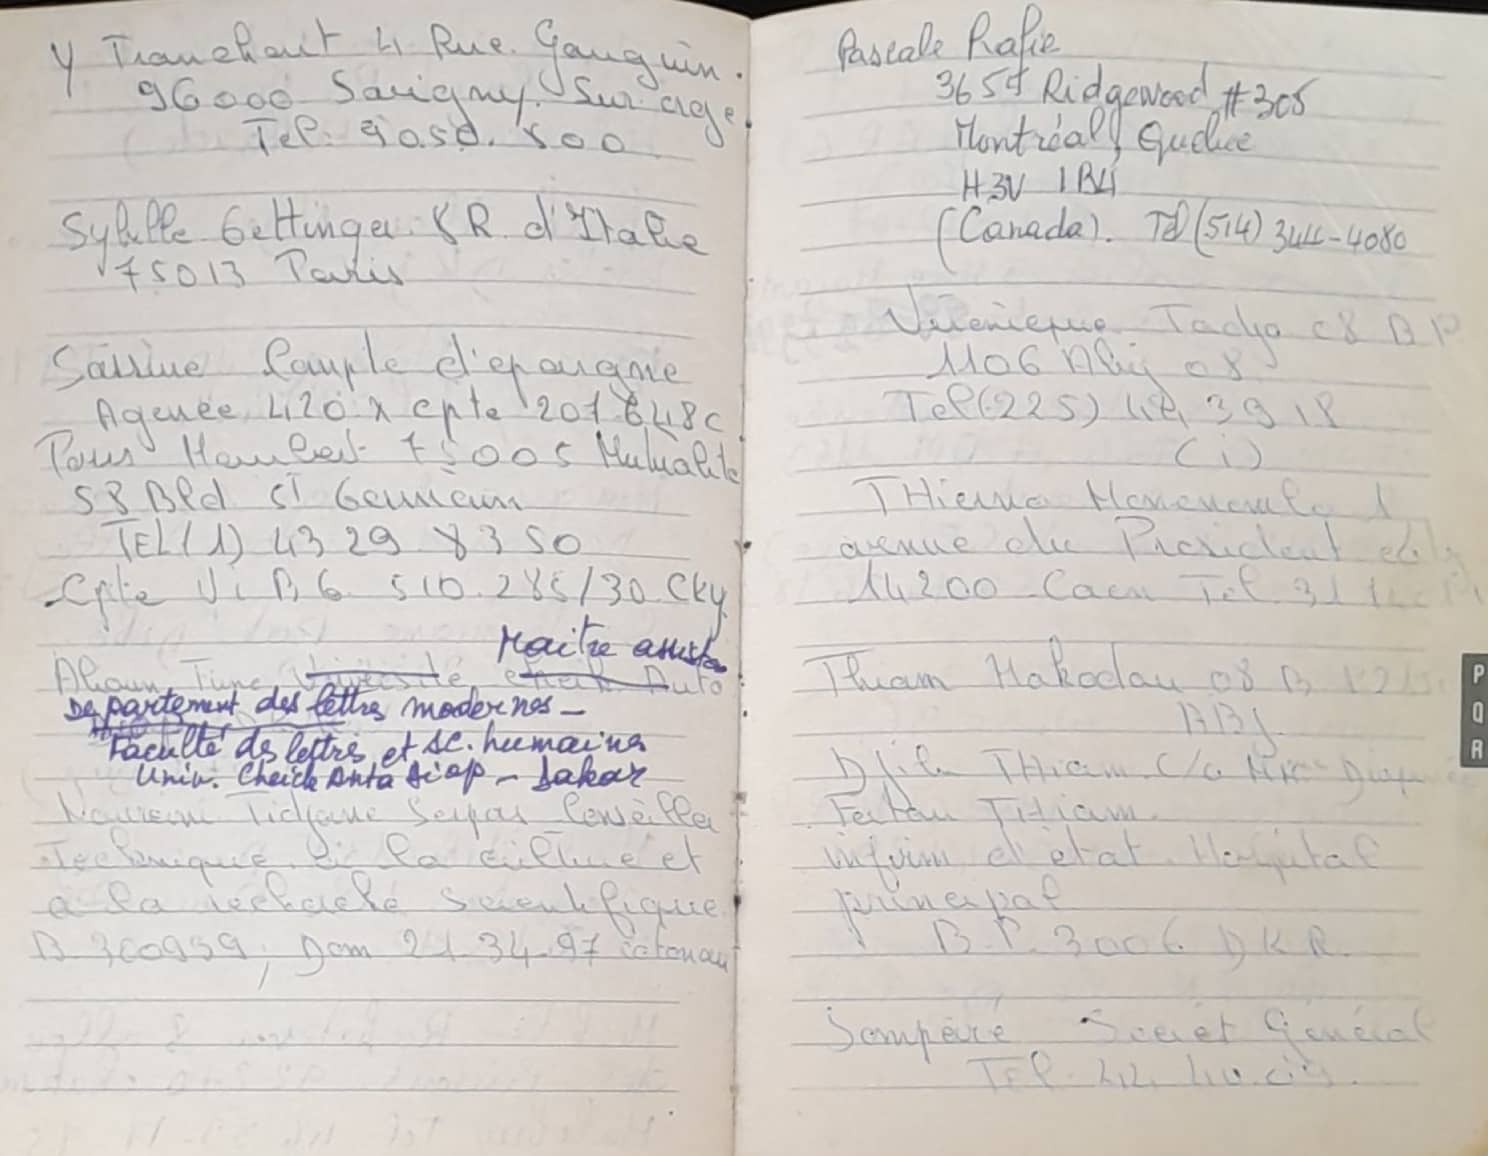 Y Tranchant 4 Rue Gauguin.
96000 Savigny Sur orge
Tel: 9050.500
Sybille Gettinger 8R d'Italie
75013 Paris
Sassine Compte d'epargne
Agence 420 x cpte 207 648c
Paris Maubert 75005 Mutualité
58 Bld St Germain
TEL (1) 43 29 83 50
Cpte U.i B G 510.285/30 Cky
Maitre assista
Alioun Tine Université
Departement des lettres modernes –
Faculté des lettres et sc. humaines
Univ. Cheick Anta Diop – Dakar
Tidjane Serpos Conseiller
Technique à la culture et
a la recherche Scientifique
B 300959, Dom 21.34.97 cotonou
Pascale Rafie
3654 Ridgewood #305
Montréal, Quebec
H3V 1B4
(Canada). Tel (514) 344-4080
Véronique Tadjo 08 BP
1106 Abij 08
Tel (225) 44 39 18
(i)
THierno Monenembo 1
avenue du President
14200 Caen Tel. 31
Thiam Makodou 08 B
ABJ.
THiam C/o
Fatou THiam
infirm d'état Hopital
principal
B.P. 3006 DKR.
Sempéré Secret Général
Tel. 44 40
P
Q
R